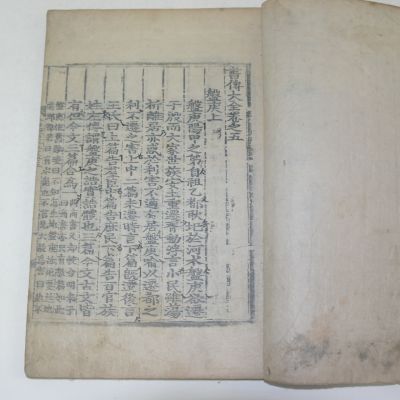 書傳大全卷之五
盤庚上
盤庚陽甲之弟自祖乙都耿圮於河水盤庚欲遷
于殷而大家世族安土重遷胥動浮言小民雖蕩
析離居亦惑於利害不適有居盤庚喻以遷都之
利不遷之害上中二篇未遷時言下篇旣遷後言
王氏曰上篇告群臣中篇告庶民下篇告百官族
姓左傳謂盤庚之誥實誥體也三篇今文古文皆
有但今文三篇合爲一